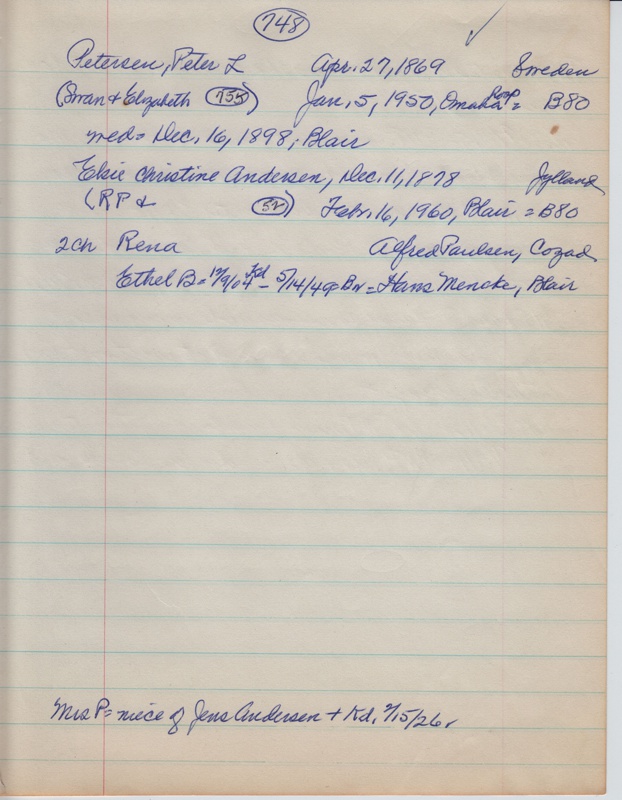 748
Petersen, Peter L Apr. 27, 1869 Sweden
(Swan & Elizabeth 755) Jan. 5, 1950, Omaha Hosp = B80
med = Dec. 16, 1898, Blair
Elsie Christine Andersen, Dec. 11, 1878 Jylland
(RP & 52) Febr. 16, 1960, Blair = B80
2 ch Rena Alfred Paulsen, Cozad
Ethel B = 12/9/04 Kd - 5/14/49 = Hans Mencke, Blair
Mrs P = niece of Jens Andersen + Kd, 15/26